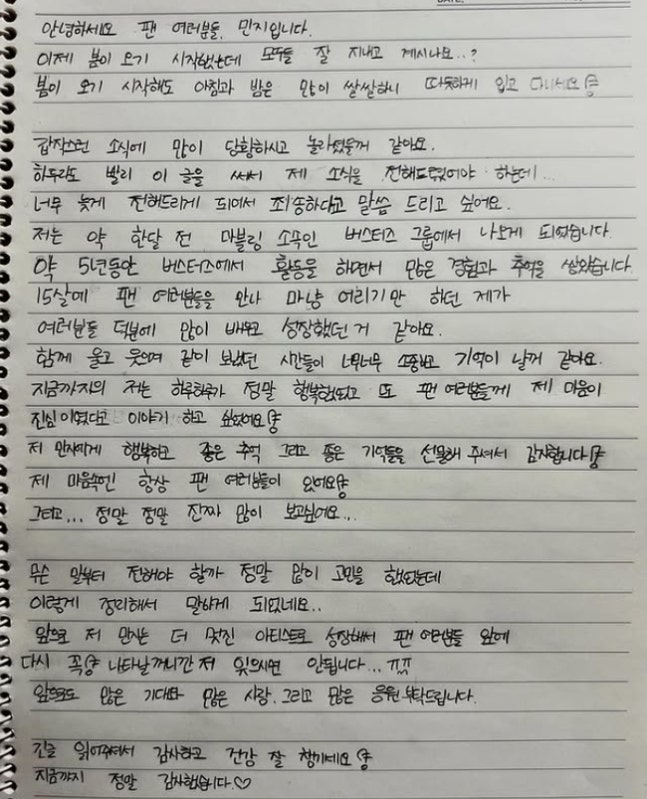 안녕하세요 팬 여러분들, 민지입니다.
이제 봄이 오기 시작했는데 모두들 잘 지내고 계시나요..?
봄이 오기 시작해도 아침과 밤은 많이 쌀쌀하니 따듯하게 입고 다니세요
갑작스런 소식에 많이 당황하시고 놀라셨을꺼 같아요.
하루라도 빨리 이 글을 써서 제 소식을 전해드렸어야 하는데...
너무 늦게 전해드리게 되어서 죄송하다고 말씀 드리고 싶어요.
저는 약 한달 전 마블링 소속인 버스터즈 그룹에서 나오게 되었습니다.
약 5년동안 버스터즈에서 활동을 하면서 많은 경험과 추억을 쌓았습니다.
15살에 팬 여러분들을 만나 마냥 어리기만 하던 제가
여러분들 덕분에 많이 배우고 성장했던 거 같아요.
함께 울고 웃으며 같이 보냈던 시간들이 너무너무 소중하고 기억이 날꺼 같아요.
지금까지의 저는 하루하루가 정말 행복했었고 또 팬 여러분들께 제 마음이
진심이였다고 이야기 하고 싶었어요
저 민지에게 행복하고 좋은 추억 그리고 좋은 기억들을 선물해 주셔서 감사합니다
제 마음속엔 항상 팬 여러분들이 있어요
그리고... 정말 정말 진짜 많이 보고싶어요...
무슨 말부터 전해야 할까 정말 많이 고민을 했었는데
이렇게 정리해서 말하게 되었네요..
앞으로 저 민지는 더 멋진 아티스트로 성장해서 팬 여러분들 앞에
다시 꼭 나타날꺼니깐 저 잊으시면 안됩니다... ㅠㅠ
앞으로도 많은 기대와 많은 사랑. 그리고 많은 응원 부탁드립니다.
긴글 읽어주셔서 감사하고 건강 잘 챙기세요
지금까지 정말 감사했습니다♡